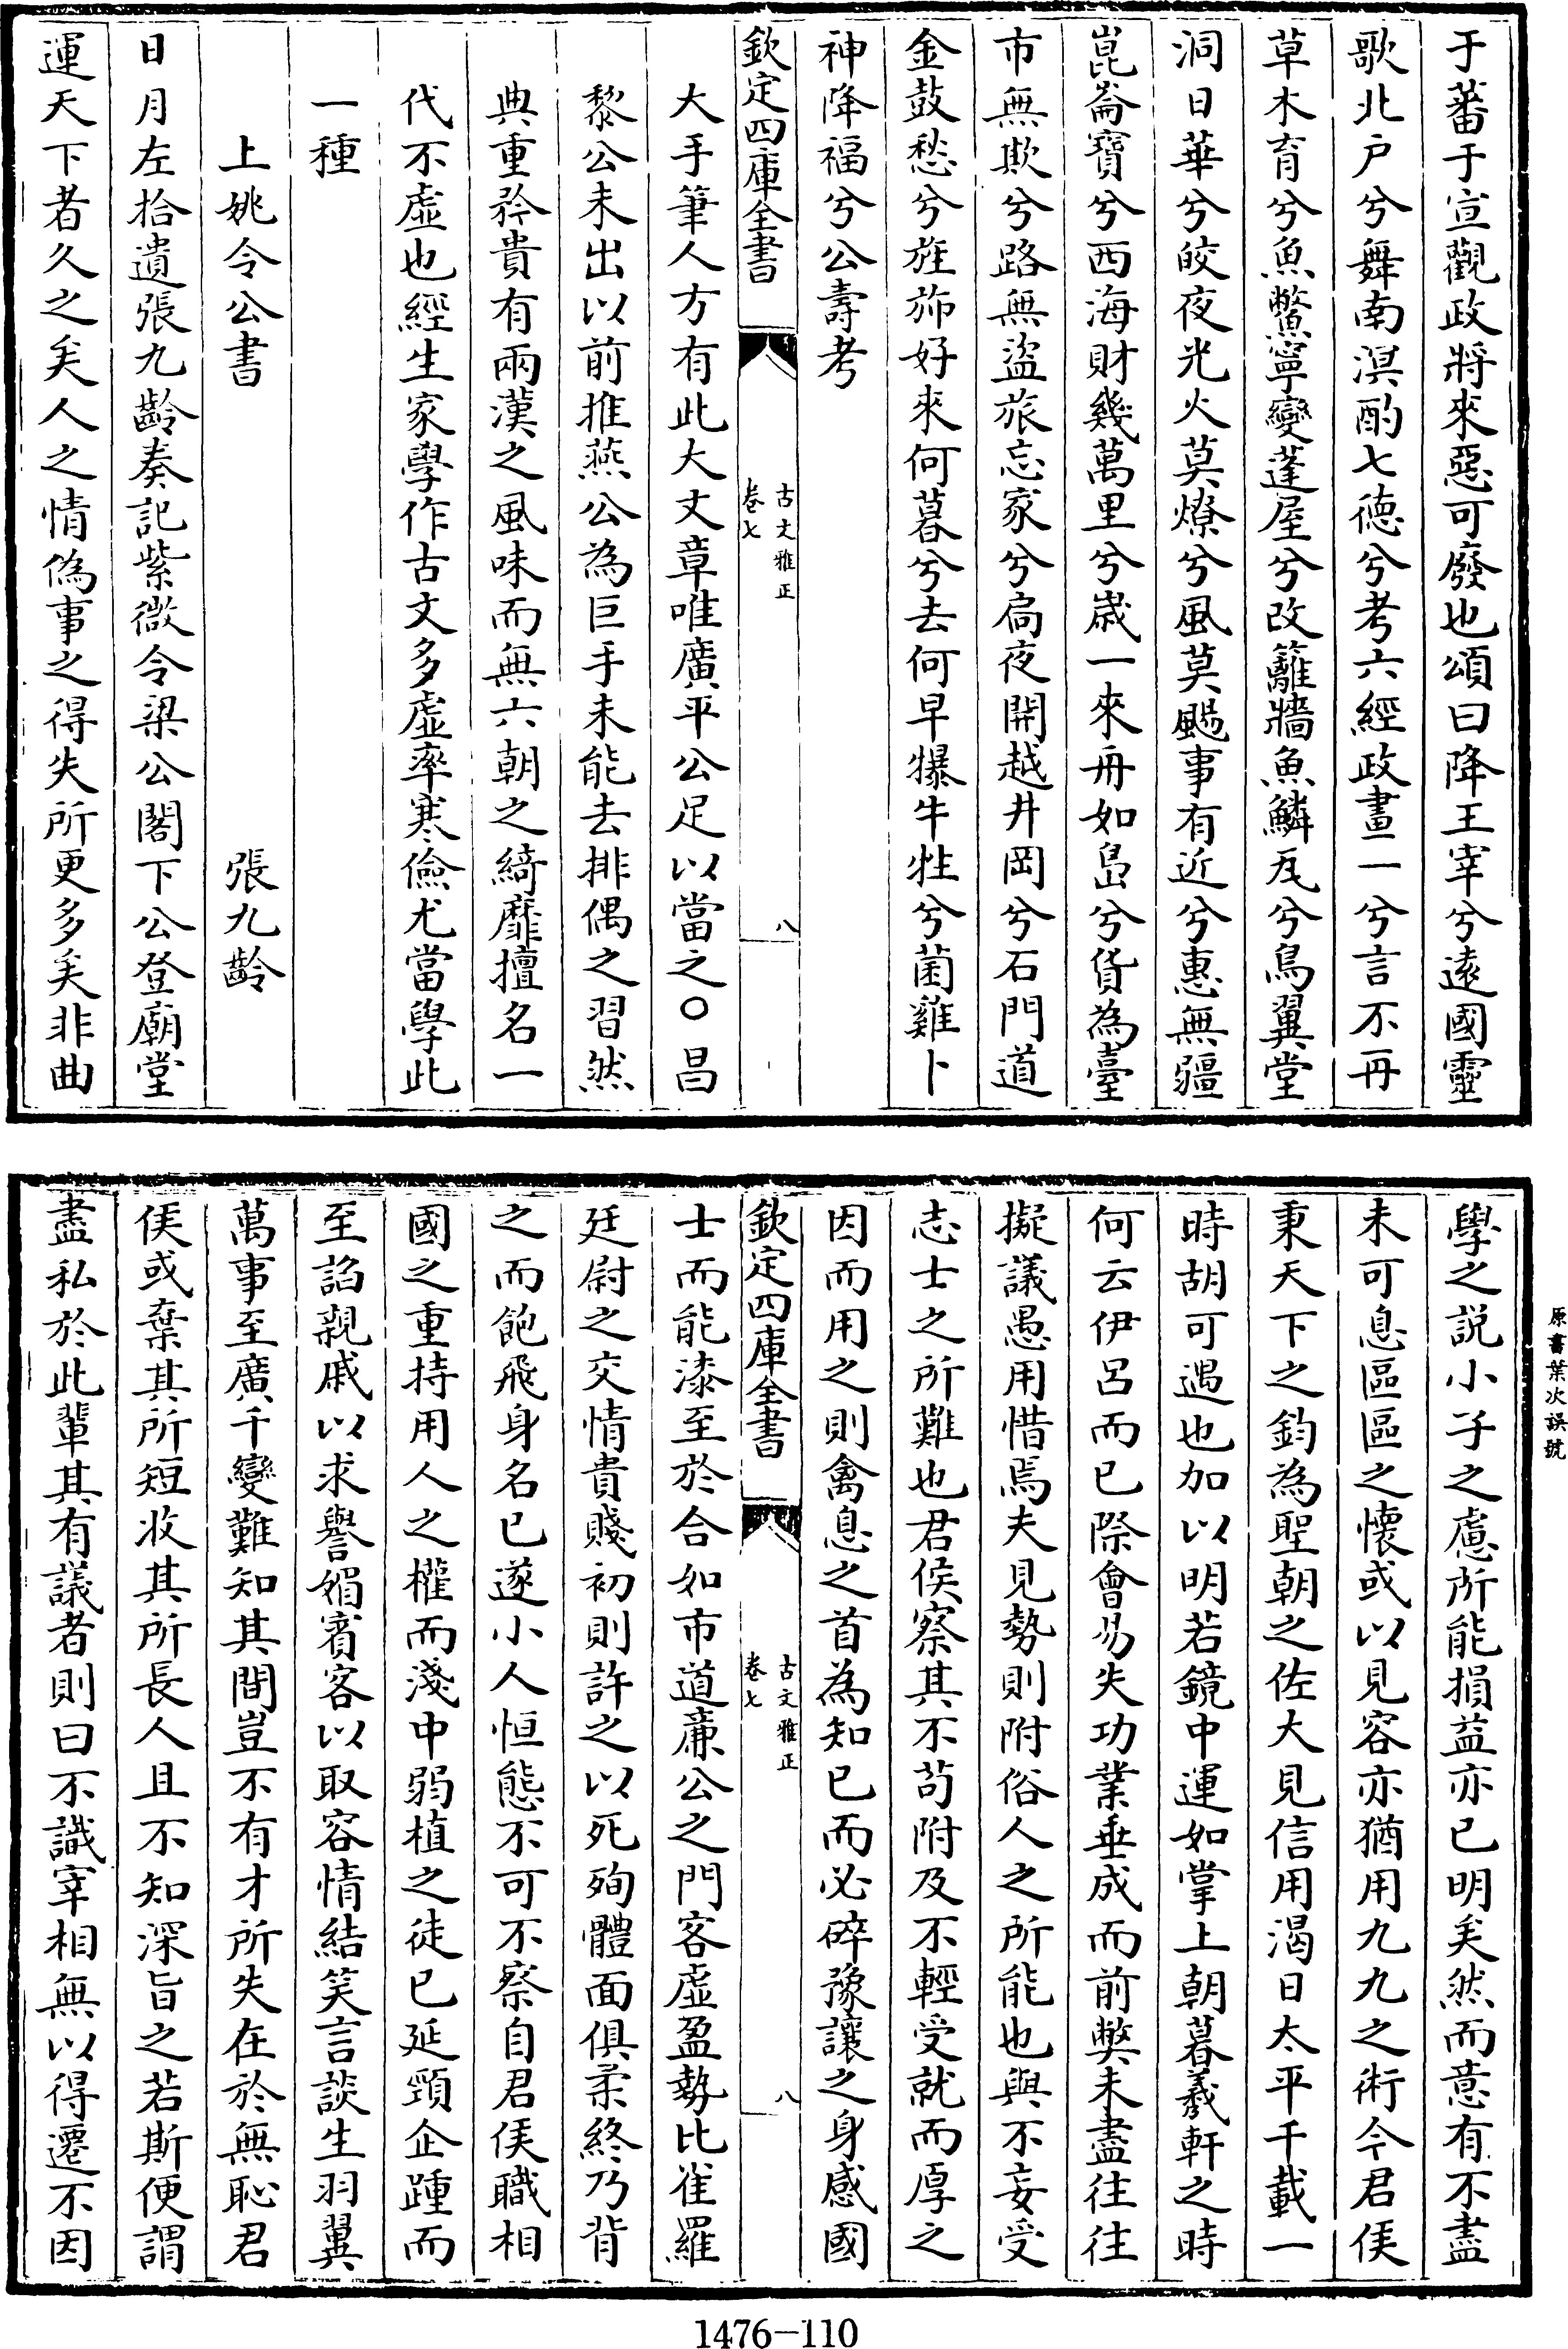 于蕃于宣觀政將來惡可廢也頌曰降王宰兮遠國靈
歌北户兮舞南溟酌七徳兮考六經政畫一兮言不再
草木育兮魚鱉寧變蓬屋兮改籬牆魚鱗瓦兮鳥翼堂
洞日華兮皎夜光火莫燎兮風莫颺事有近兮惠無疆
崑崙寶兮西海財幾萬里兮嵗一來舟如島兮貨為臺
市無欺兮路無盜旅忘家兮扃夜開越井岡兮石門道
金鼓愁兮旌斾好來何暮兮去何早犦牛牲兮菌雞卜
神降福兮公壽考
欽定四庫全書
古文雅正
卷七
八
大手筆人方有此大文章唯廣平公足以當之○昌
黎公未出以前推燕公為巨手未能去排偶之習然
典重矜貴有兩漢之風味而無六朝之綺靡擅名一
代不虛也經生家學作古文多虛率寒儉尤當學此
一種
上姚令公書
張九齡
日月左拾遺張九齡奏記紫微令梁公閣下公登廟堂
運天下者久之矣人之情偽事之得失所更多矣非曲
原書葉次誤號
學之説小子之慮所能損益亦已明矣然而意有不盡
未可息區區之懷或以見容亦猶用九九之術今君侯
秉天下之鈞為聖朝之佐大見信用渴日太平千載一
時胡可遇也加以明若鏡中運如掌上朝暮羲軒之時
何云伊呂而已際會易失功業垂成而前弊未盡往往
擬議愚用惜焉夫見勢則附俗人之所能也與不妄受
志士之所難也君侯察其不苟附及不輕受就而厚之
因而用之則禽息之首為知已而必碎豫讓之身感國
欽定四庫全書
古文雅正
卷七
八
士而能漆至於合如市道亷公之門客虛盈勢比雀羅
廷尉之交情貴賤初則許之以死殉體面俱柔終乃背
之而飽飛身名已遂小人恒態不可不察自君侯職相
國之重持用人之權而淺中弱植之徒已延頸企踵而
至諂親戚以求譽媚賓客以取容情結笑言談生羽翼
萬事至廣千變難知其間豈不有才所失在於無恥君
侯或棄其所短收其所長人且不知深旨之若斯便謂
盡私於此輩其有議者則曰不識宰相無以得遷不因
1476-110